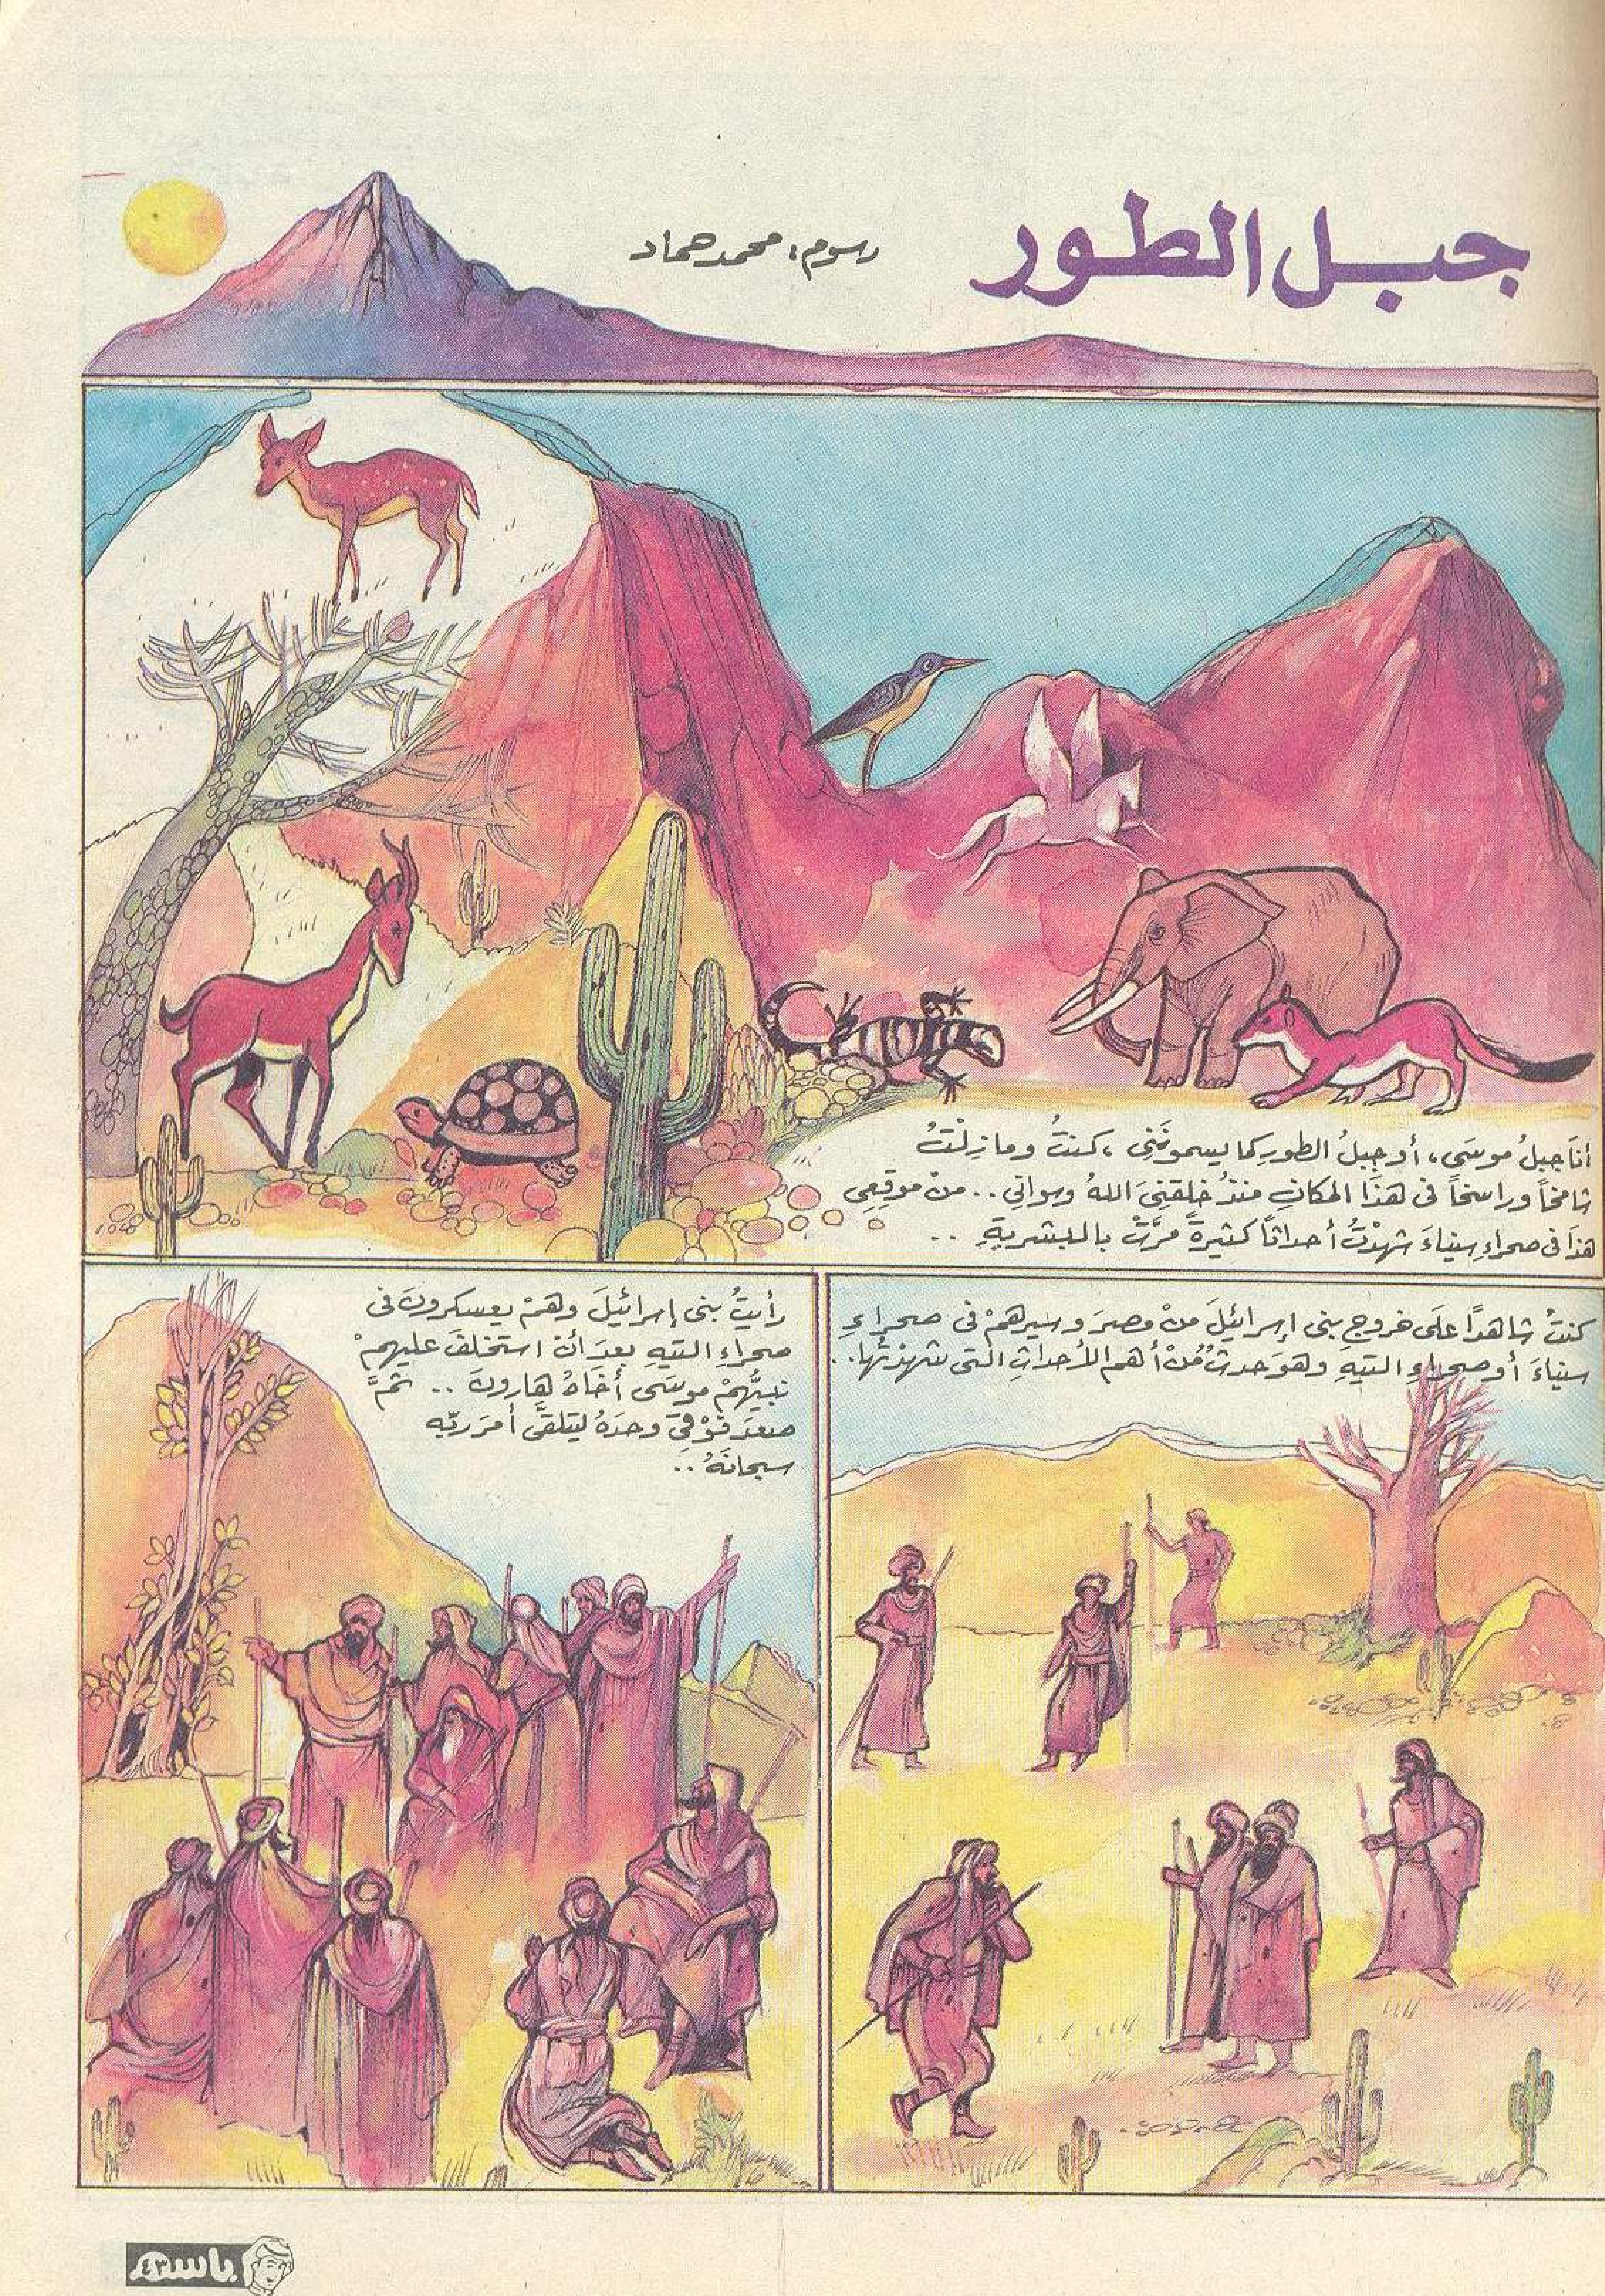 جبل الطور
رسوم: محمد حماد
أنَا جبلُ موسَى، أو جبلُ الطورِ كما يسمونَنِي، كنتُ ومازِلْتُ
شامخًا وراسخًا في هذَا المكانِ منذُ خلقنِيَ اللهُ وسواني.. منْ موقِعِي
هذَا في صحراءِ سيناءَ شهدْتُ أحداثًا كثيرةً مَرَّتْ بالبشريةِ ..
كنتُ شاهدًا علَى خروجِ بني إسرائيلَ منْ مصرَ وسيرهمْ في صحراءِ
سيناءَ أو صحراءِ التيهِ وهوَ حدثٌ منْ أهمِ الأحداثِ التي شهدْتُها..
رأيتُ بني إسرائيلَ وهمْ يعسكرونَ في
صحراءِ التيهِ بعدَ أنْ استخلفَ عليهمْ
نبيُّهمْ موسَى أخاهُ هارونَ .. ثمَّ
صعدَ فوْقِي وحدَهُ ليتلقَّى أمرَ ربِّه
سبحانَهُ ..
باسم
٤٣